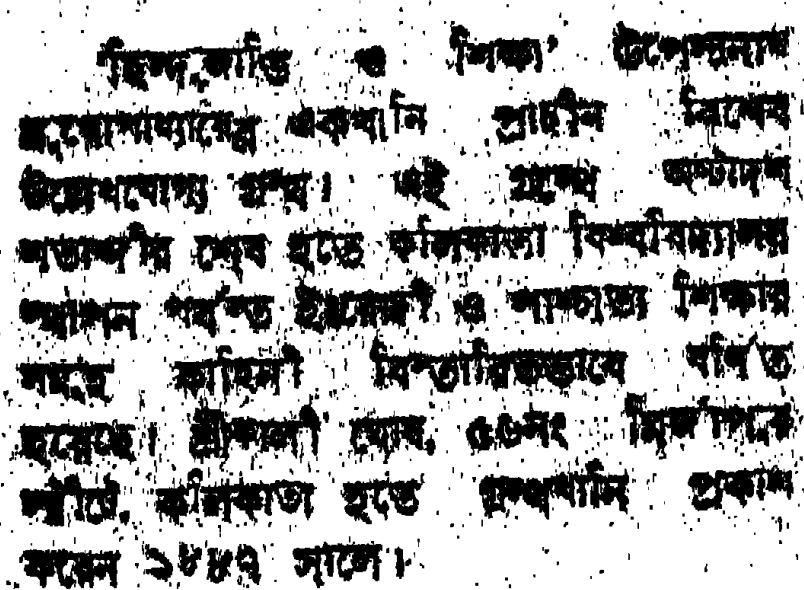 'হিন্দু জাতি ও শিক্ষা' উপেন্দ্রনাথ
মুখোপাধ্যায়ের একখানি প্রাচীন বিশেষ
উল্লেখযোগ্য গ্রন্থ। এই গ্রন্থে অষ্টাদশ
শতাব্দীর শেষ হতে কলিকাতা বিশ্ববিদ্যালয়
স্থাপন পর্যন্ত ইংরেজী ও পাশ্চাত্য শিক্ষার
সমস্ত কাহিনী বিস্তারিতভাবে বর্ণিত
হয়েছে। শ্রীকালী ঘোষ, ৫৬নং মির্জাপুর
স্ট্রীট, কলিকাতা হতে গ্রন্থখানি প্রকাশ
করেন ১৮৮৭ সালে।